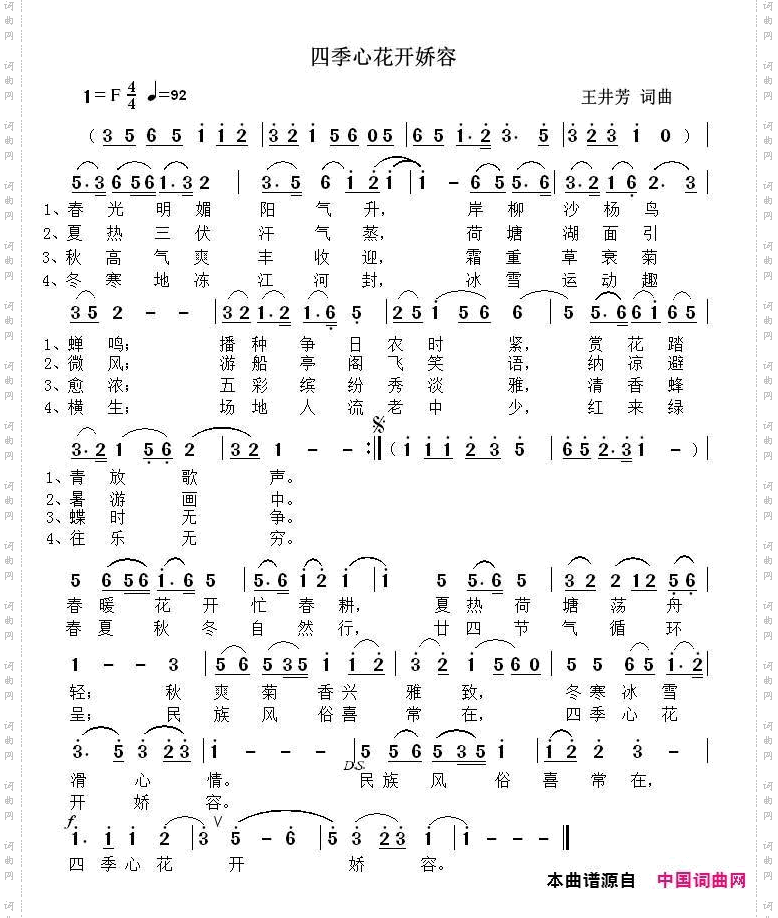 四季心花开娇容
1=F 4/4 ♩=92
王井芳 词曲
（ 3 5 6 5 i i 2 | 3 2 i 5 6 0 5 | 6 5 i· 2 3· 5 | 3 2 3 i 0 ） |
5· 3 6 5 6 i· 3 2 | 3· 5 6 i 2 i | i - 6 5 5· 6 | 3· 2 1 6 2· 3 |
1、春 光 明 媚 阳 气 升， 岸 柳 沙 杨 鸟
2、夏 热 三 伏 汗 气 蒸， 荷 塘 湖 面 引
3、秋 高 气 爽 丰 收 迎， 霜 重 草 衰 菊
4、冬 寒 地 冻 江 河 封， 冰 雪 运 动 趣
3 5 2 - - | 3 2 1· 2 1· 6 5 | 2 5 1 5 6 6 | 5 5· 6 6 i 6 5 |
1、蝉 鸣； 播 种 争 日 农 时 紧， 赏 花 踏
2、微 风； 游 船 亭 阁 飞 笑 语， 纳 凉 避
3、愈 浓； 五 彩 缤 纷 秀 淡 雅， 清 香 蜂
4、横 生； 场 地 人 流 老 中 少， 红 来 绿
3· 2 1 5 6 2 | 3 2 1 - - :|| （ i i i 2 3 5 | 6 5 2· 3 i - ） |
1、青 放 歌 声。
2、暑 游 画 中。
3、蝶 时 无 争。
4、往 乐 无 穷。
5 6 5 6 i· 6 5 | 5· 6 i 2 i | i 5 5· 6 5 | 3 2 2 1 2 5 6 |
春 暖 花 开 忙 春 耕， 夏 热 荷 塘 荡 舟
春 夏 秋 冬 自 然 行， 廿 四 节 气 循 环
1 - - 3 | 5 6 5 3 5 i i 2 | 3 2 i 5 6 0 | 5 5 6 5 i· 2 |
轻； 秋 爽 菊 香 兴 雅 致， 冬 寒 冰 雪
呈； 民 族 风 俗 喜 常 在， 四 季 心 花
3· 5 3 2 3 | i - - - | 5 5 6 5 3 5 i | i 2 2 3 - |
滑 心 情。 D.S. 民 族 风 俗 喜 常 在，
开 娇 容。
f
i· i i 2 3 ∨ 5 - 6 | 5 3 2 3 i | i - - - ||
四 季 心 花 开 娇 容。
本曲谱源自 中国词曲网
词曲网